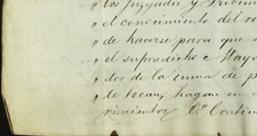 " los Juzgados y Tribun
" el conocimiento del ro
" de hacerse para que
" el supradicho e Mayo
" dor de la suma de p
" le tocan, hagan en
" rimientos